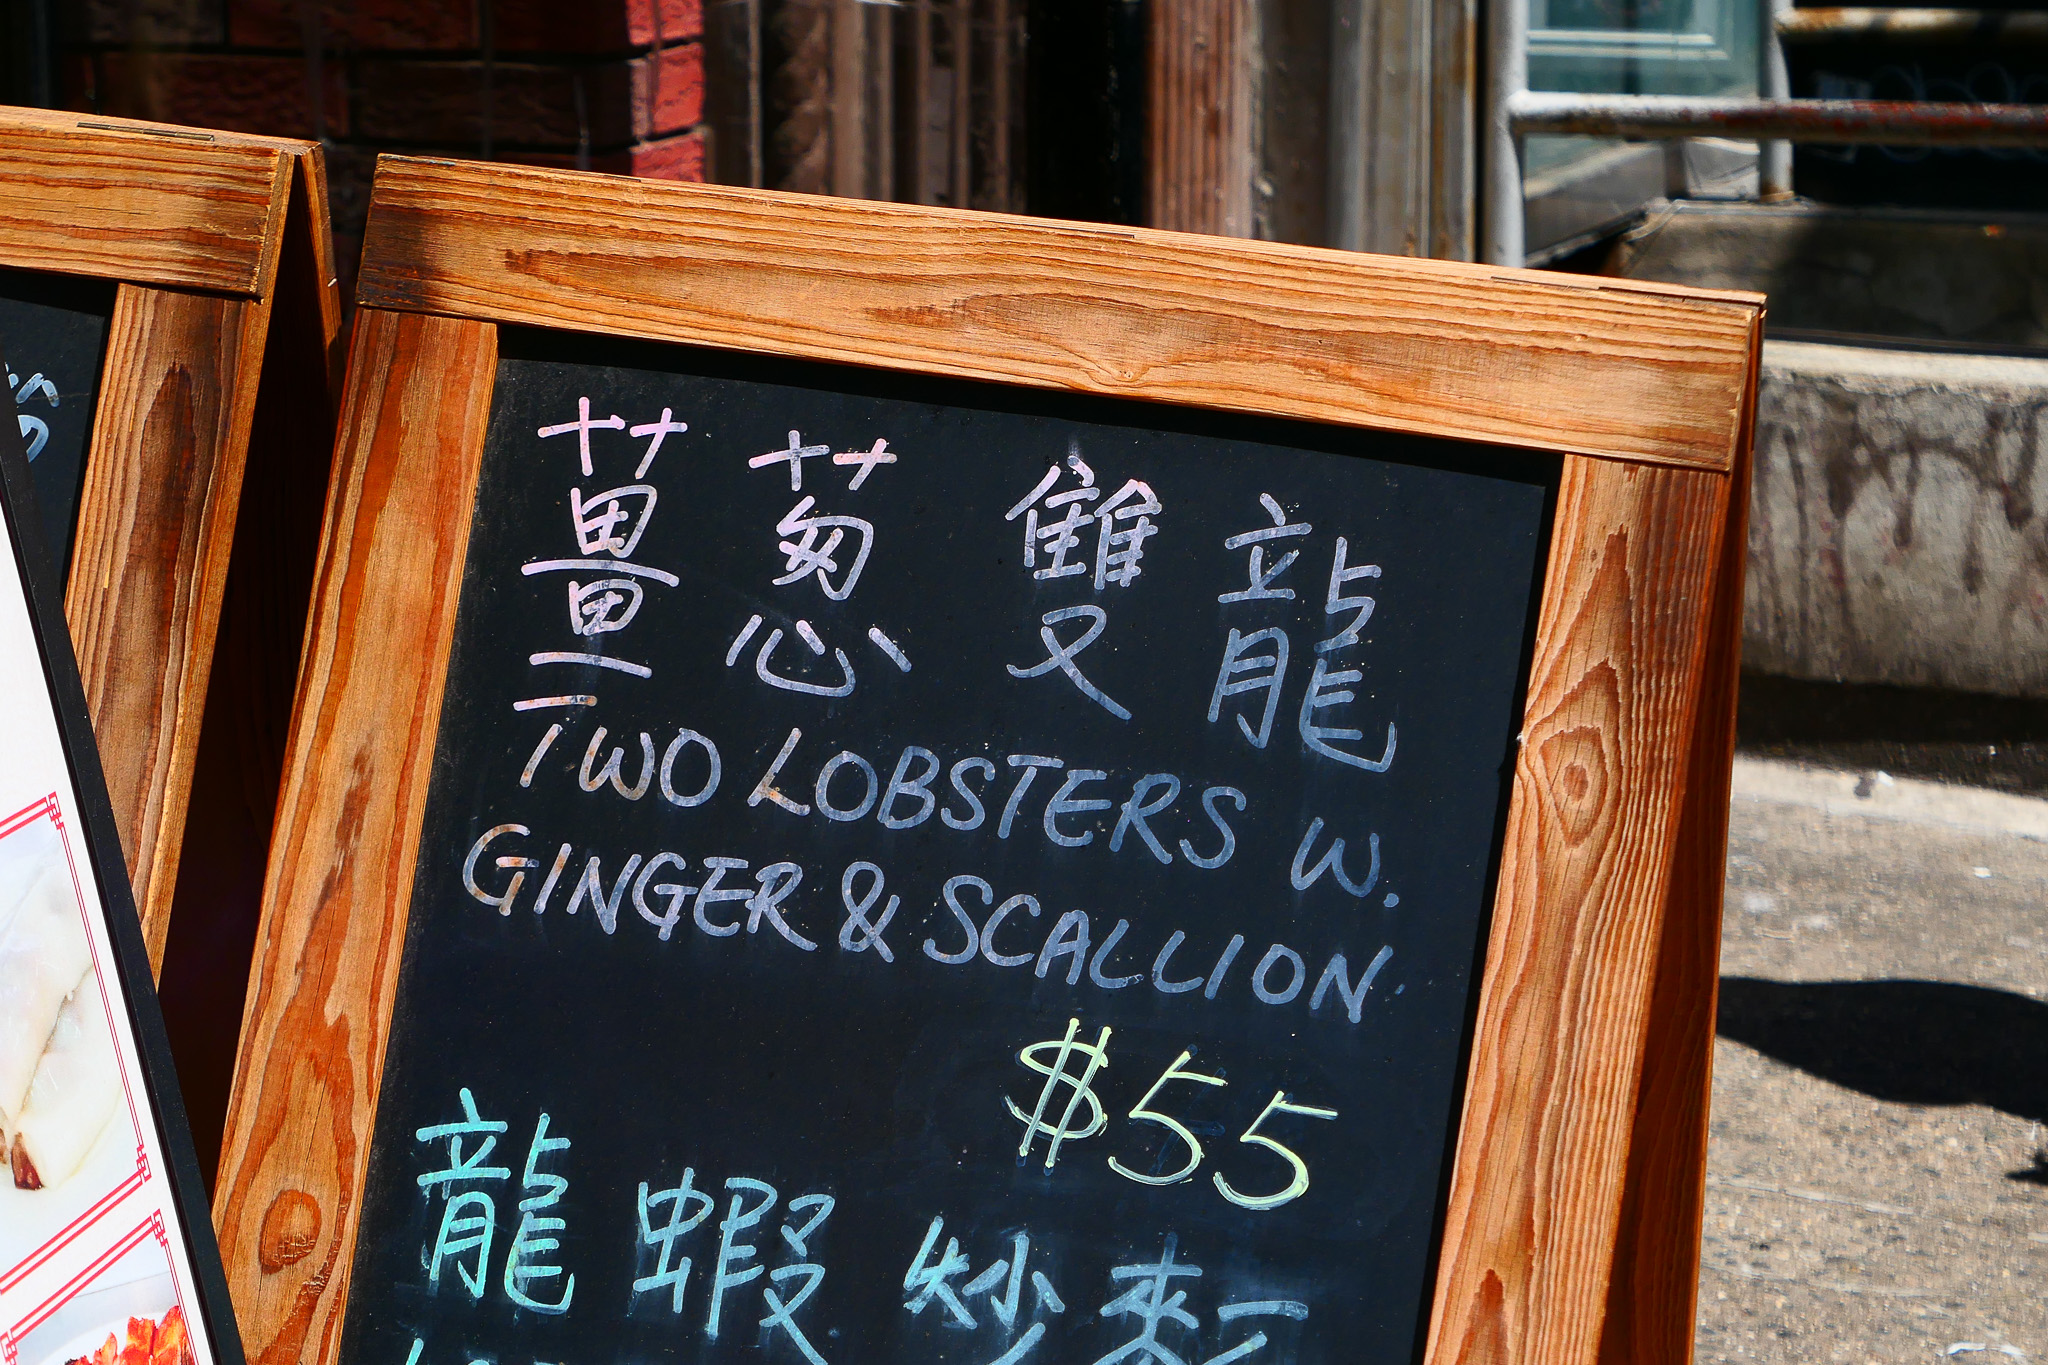 薑蔥雙龍
TWO LOBSTERS W.
GINGER & SCALLION
$55
龍蝦炒